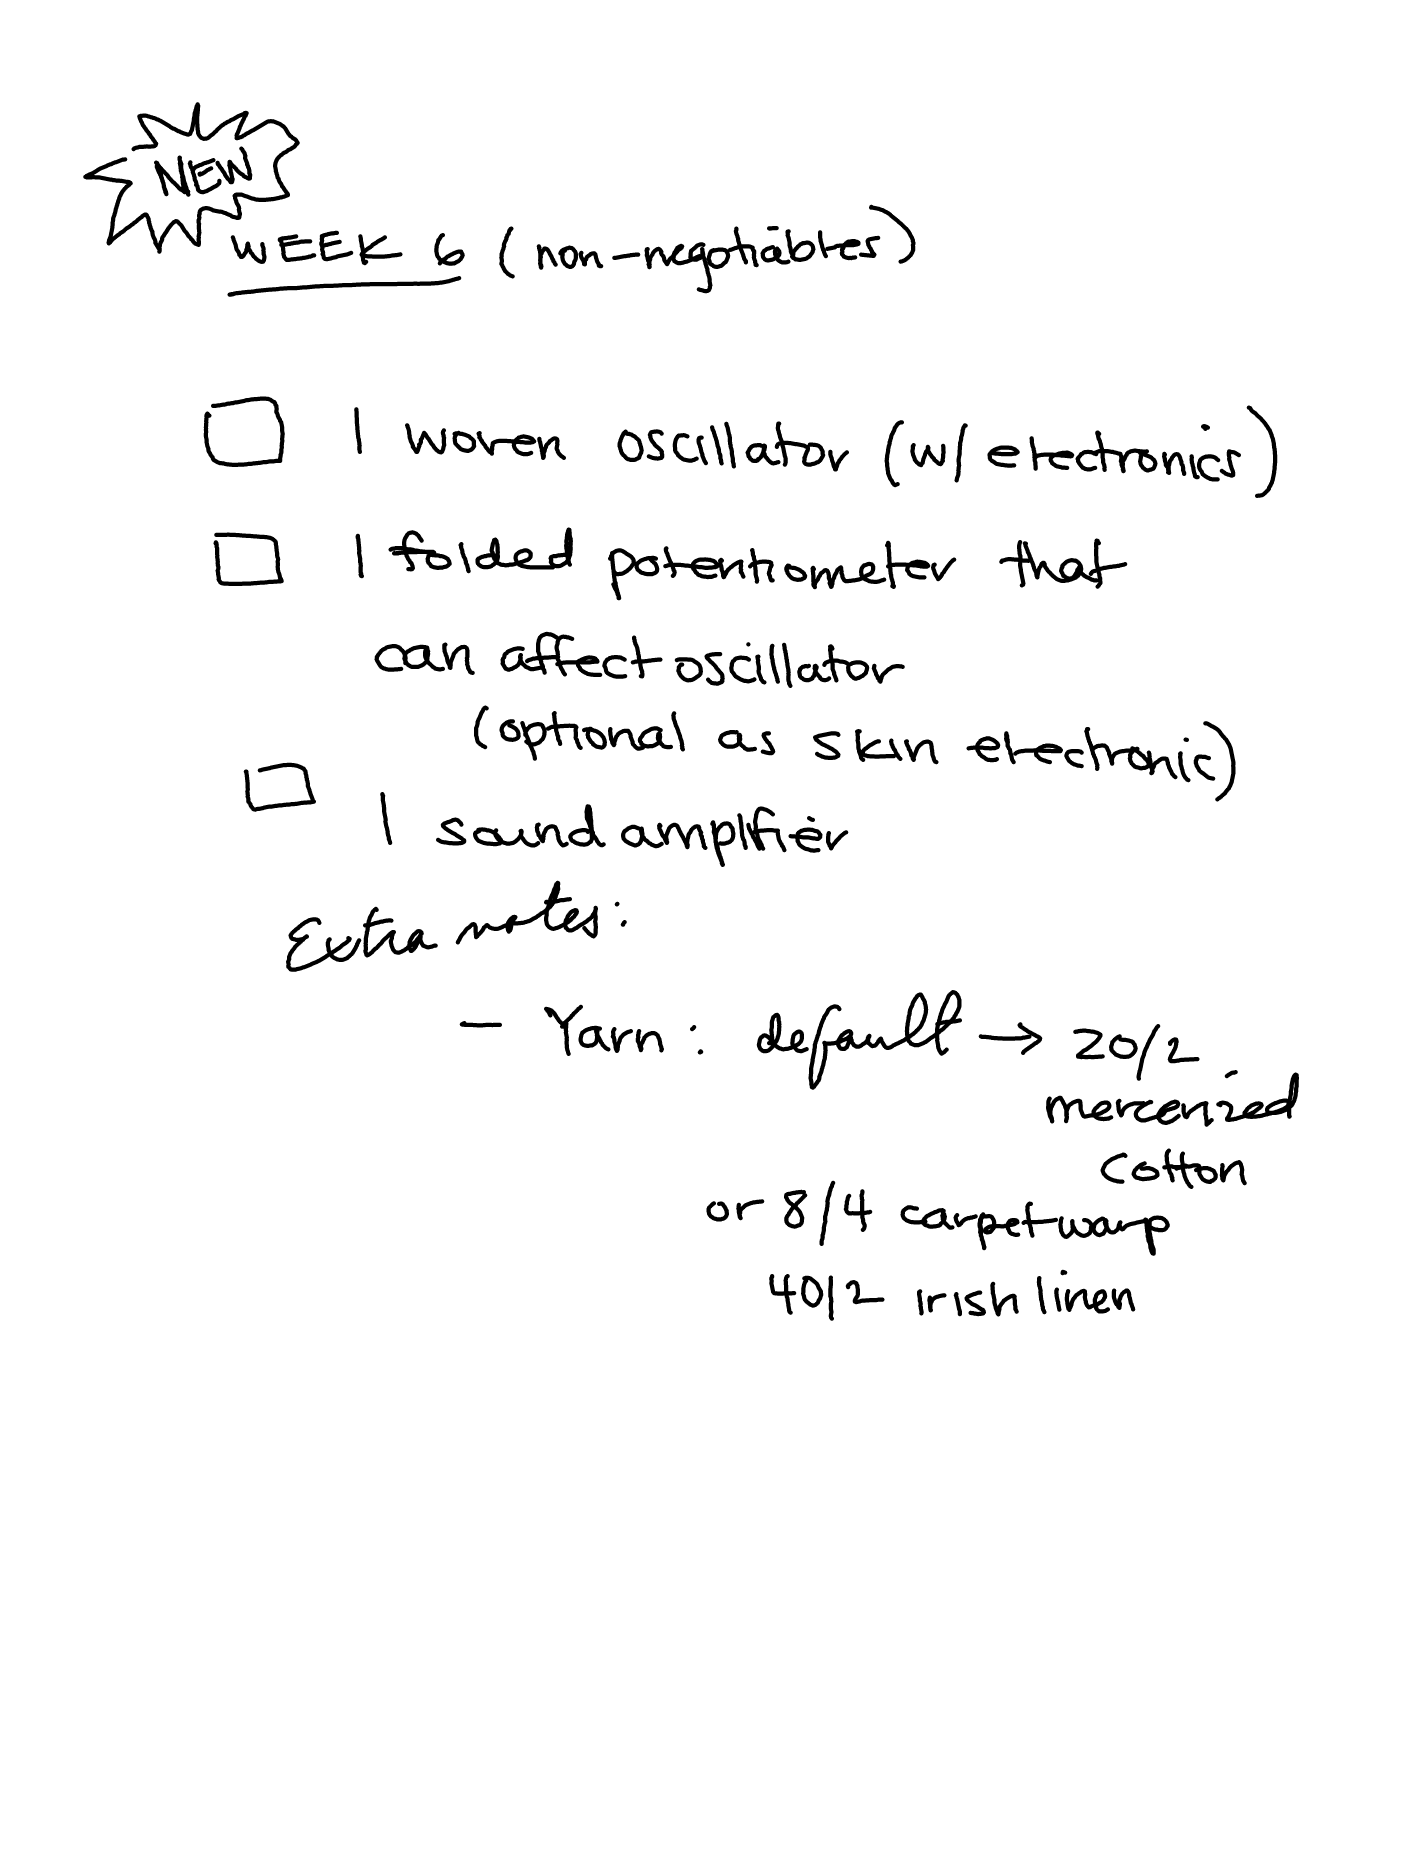 NEW
WEEK 6 (non-negotiables)
1 woven oscillator (w/ electronics)
1 folded potentiometer that
can affect oscillator
(optional as skin electronic)
1 sound amplifier
Extra notes:
- Yarn: default → 20/2
mercerized
cotton
or 8/4 carpet warp
40/2 irish linen